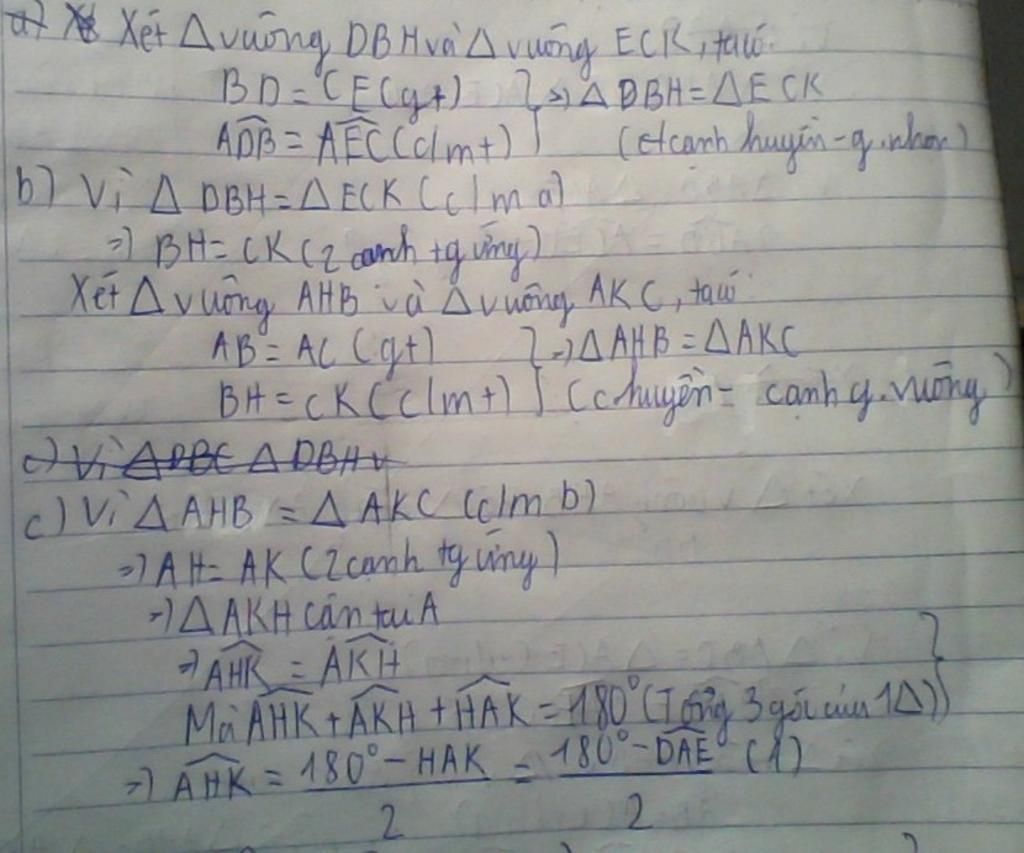 a) Xét Δ vuông DBH và Δ vuông ECK, ta có:
BD = CE (gt) } => Δ DBH = Δ ECK
ADB = AEC (c/m t) } (cạnh huyền - g. nhọn)
b) Vì Δ DBH = Δ ECK (c/m a)
=> BH = CK (2 cạnh tg ứng)
Xét Δ vuông AHB và Δ vuông AKC, ta có:
AB = AC (gt) } => Δ AHB = Δ AKC
BH = CK (c/m t) } (c huyền - cạnh g. vuông)
c) Vì Δ DBC Δ DBH v
c) Vì Δ AHB = Δ AKC (c/m b)
=> AH = AK (2 cạnh tg ứng)
=> Δ AKH cân tại A
=> AHK = AKH }
Mà AHK + AKH + HAK = 180° (Tổng 3 góc của 1Δ) }
=> AHK = 180° - HAK / 2 = 180° - DAE / 2 (1)